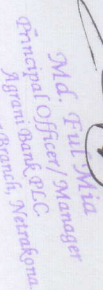 Md. Ful Mia
Principal Officer/Manager
Agrani Bank PLC.
Branch, Netrakona.